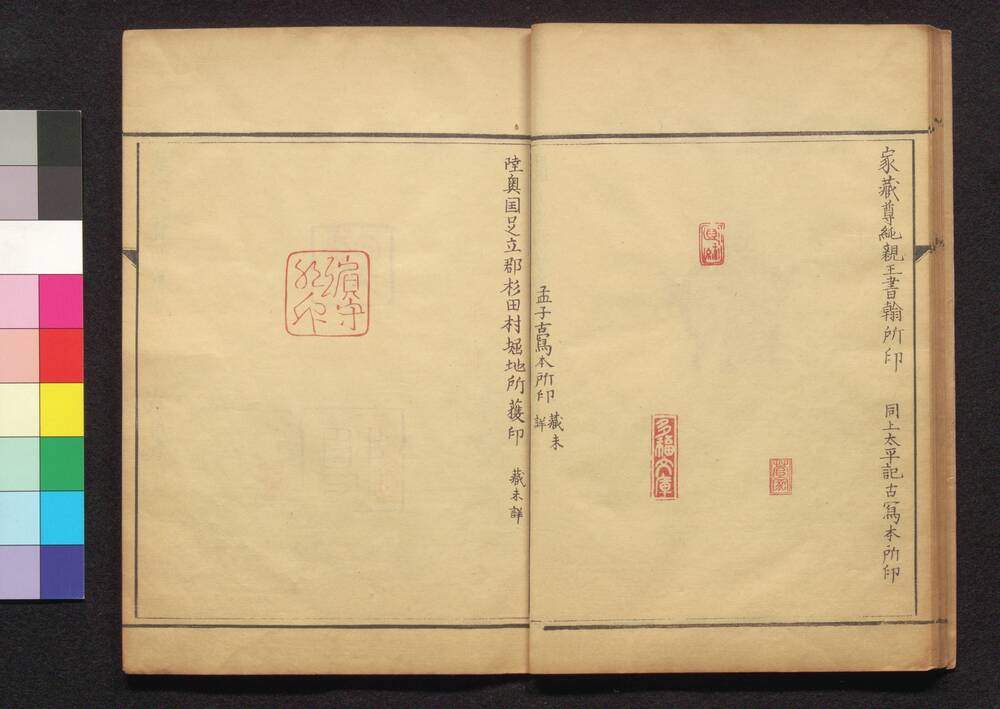 家蔵尊純親王書翰所印
同上太平記古寫本所印
多福文庫
孟子古寫本所印
蔵未
詳
陸奥国足立郡杉田村堀地所獲印
蔵未詳